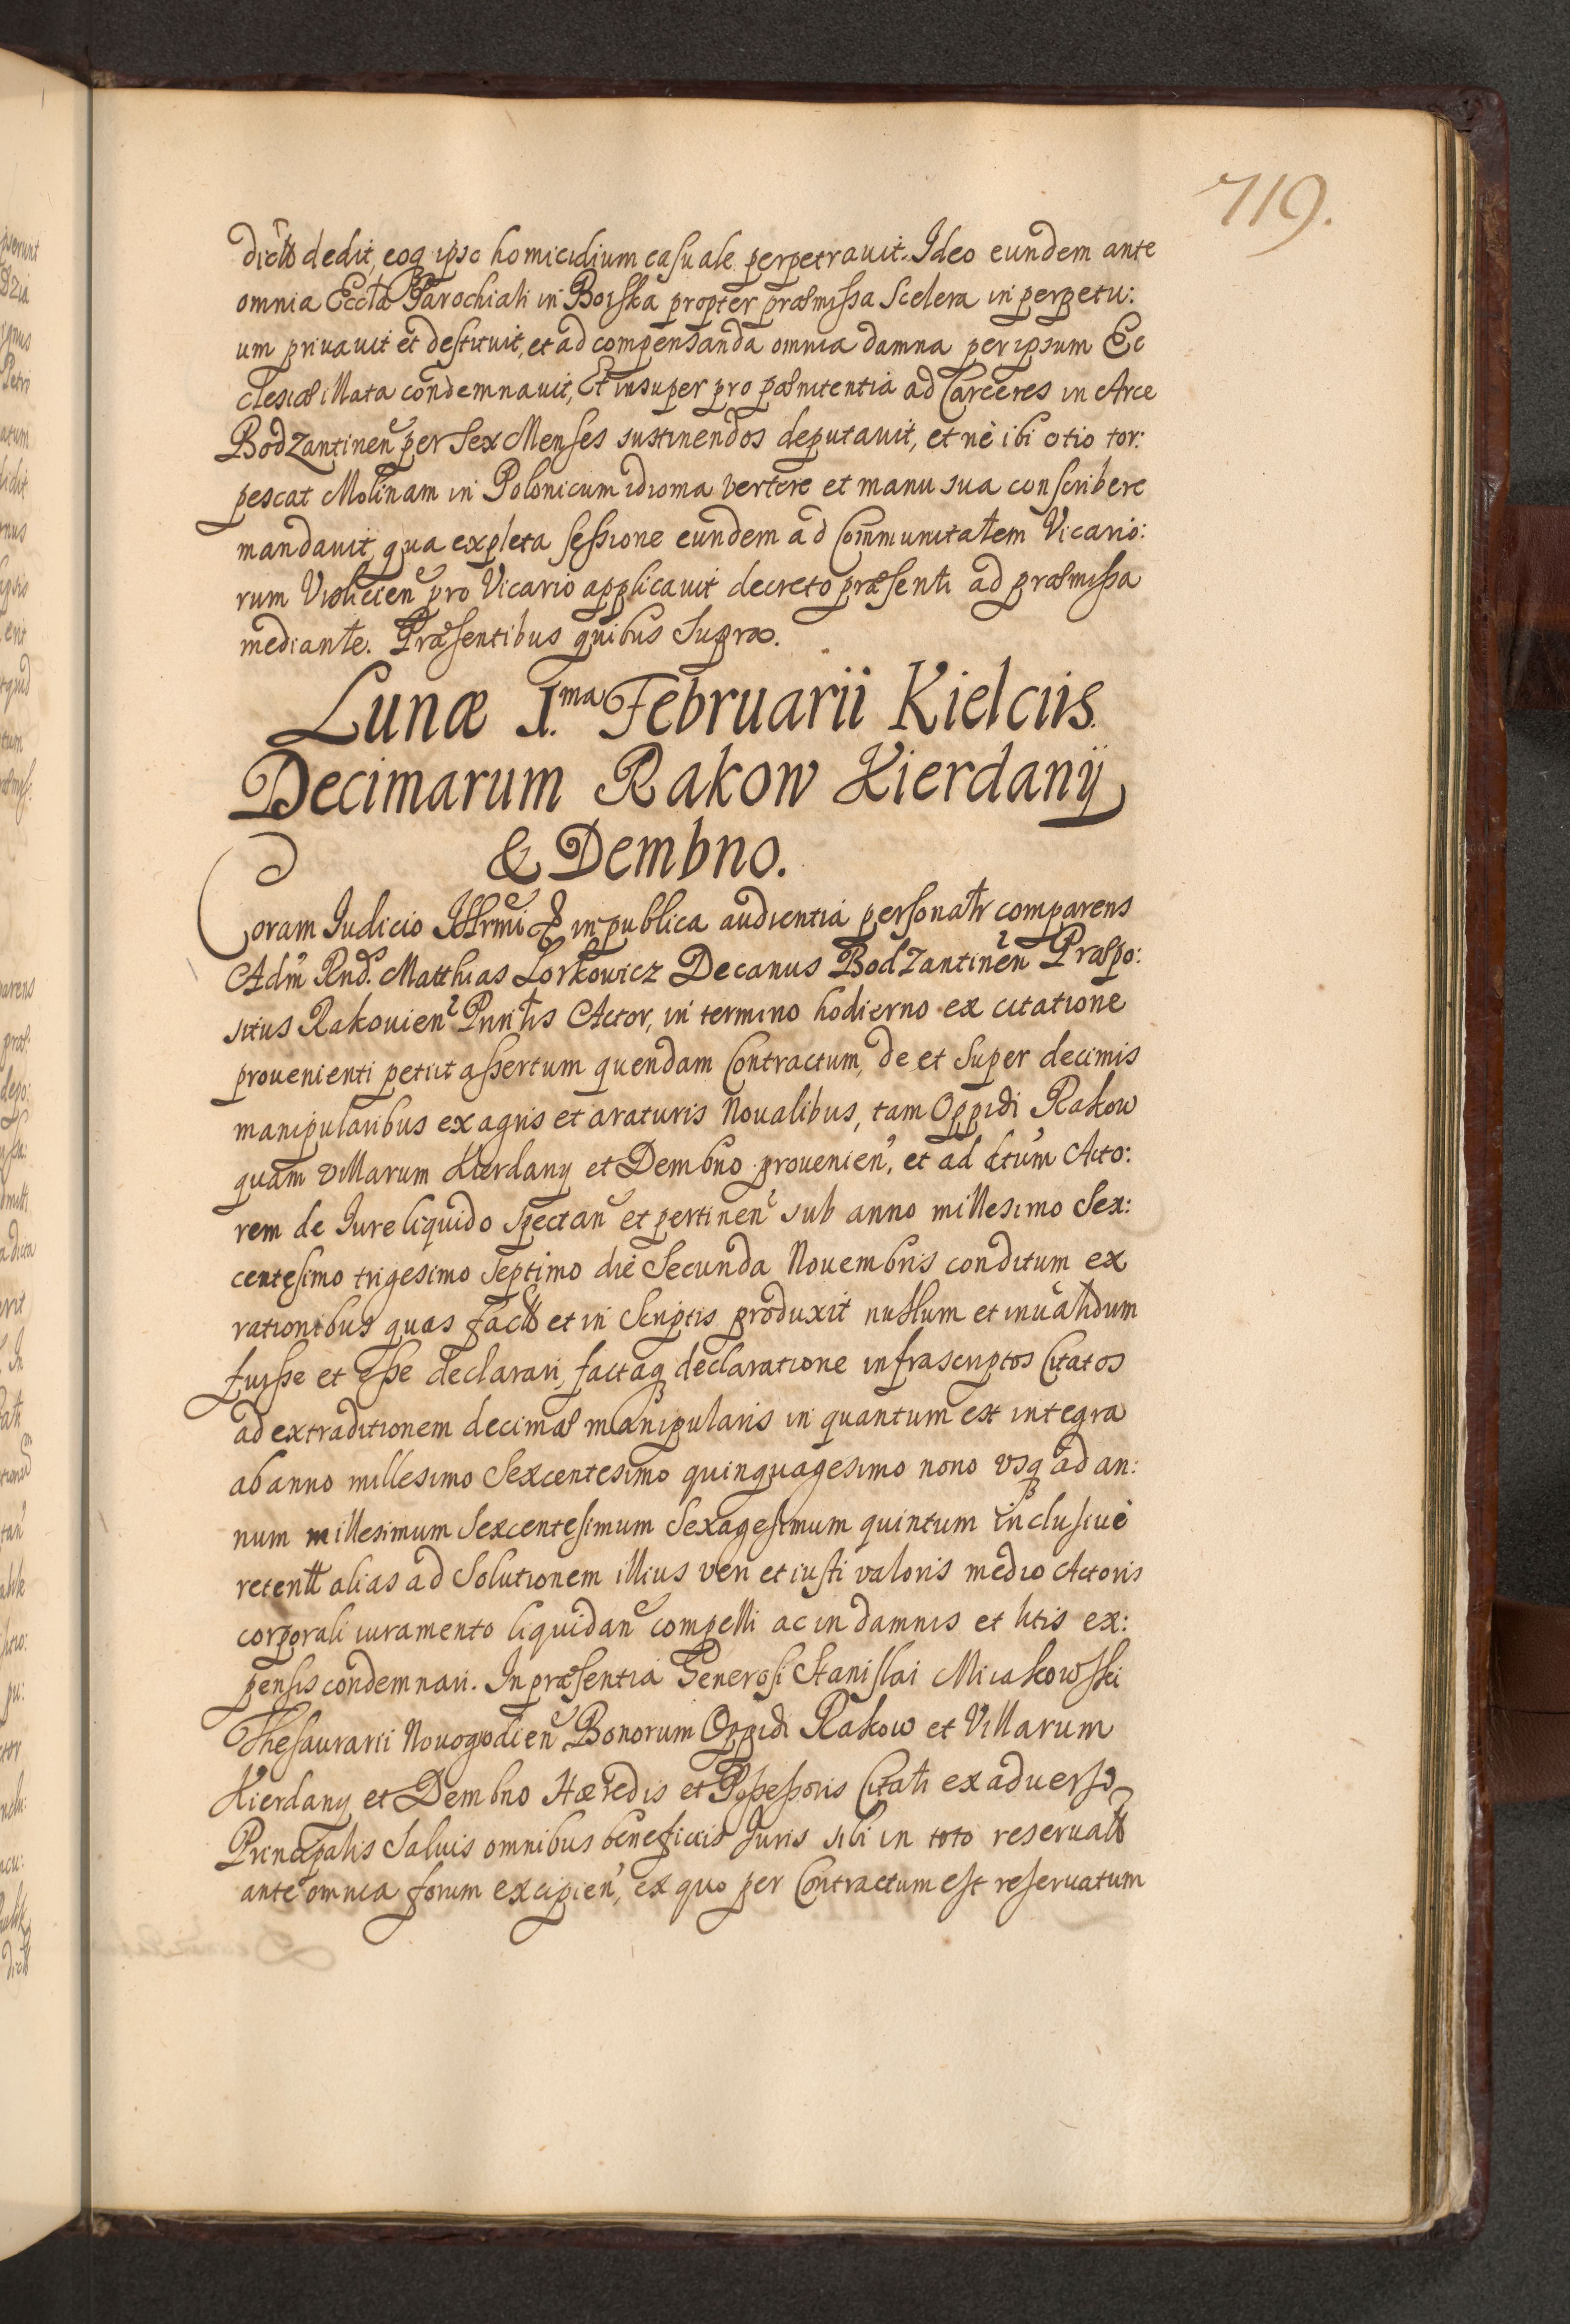 719.
dictus dedit, eoq ipso homicidium casuale perpetrauit. Ideo eundem ante
omnia Eccla Parochiali in Boiska propter præmissa Scelera in perpetu:
um priuauit et destituit, et ad compensanda omnia damna per ipsum Ec
clesiæ illata condemnauit, Et insuper pro pænitentia ad Carceres in Arce
Bodzantinen per Sex Menses sustinendos deputauit, et nè ibi otio tor:
pescat Molinam in Polonicum idioma vertere et manu sua conscribere
mandauit, qua expleta sessione eundem ad Communitatem Vicario:
rum Vislicien pro Vicario applicauit decreto præsenti ad præmissa
mediante. Præsentibus quibus Supra.
Lunæ 1.ma Februarii Kielciis.
Decimarum Rakow Kierdanÿ
& Dembno.
Coram Iudicio Illrmi & in publica audientia personaltr comparens
Adm Rnd. Matthias Lorkowicz Decanus Bodzantinen Præpo:
situs Rakouien Pnntis Actor, in termino hodierno ex citatione
prouenienti petiit assertum quendam Contractum, de et super decimis
manipularibus ex agris et araturis Noualibus, tam Oppidi Rakow
quam villarum Kierdany et Dembno prouenien, et ad dctum Acto:
rem de Iure liquido spectan et pertinen sub anno millesimo Sex:
centesimo trigesimo septimo die Secunda Nouembris conditum ex
rationibus quas facto et in Scriptis produxit nullum et inualidum
fuisse et esse declarari, factaq declaratione infrascriptos Citatos
ad extraditionem decimæ manipularis in quantum est integra
ab anno millesimo Sexcentesimo quinquagesimo nono vsq ad an:
num millesimum Sexcentesimum Sexagesimum quintum inclusiuè
retentæ alias ad Solutionem illius veri et iusti valoris medio Actoris
corporali iuramento liquidan compelli ac in damnis et litis ex:
pensis condemnari. In præsentia Generosi Stanislai Mirakowski
Thesaurarii Nouogrodien Bonorum Oppidi Rakow et Villarum
Kierdany et Dembno Hæredis et Possessoris Citati ex aduerso
Principalis Saluis omnibus beneficiis Iuris sibi in toto reseruatis
ante omnia forum excipien, ex quo per Contractum est reseruatum